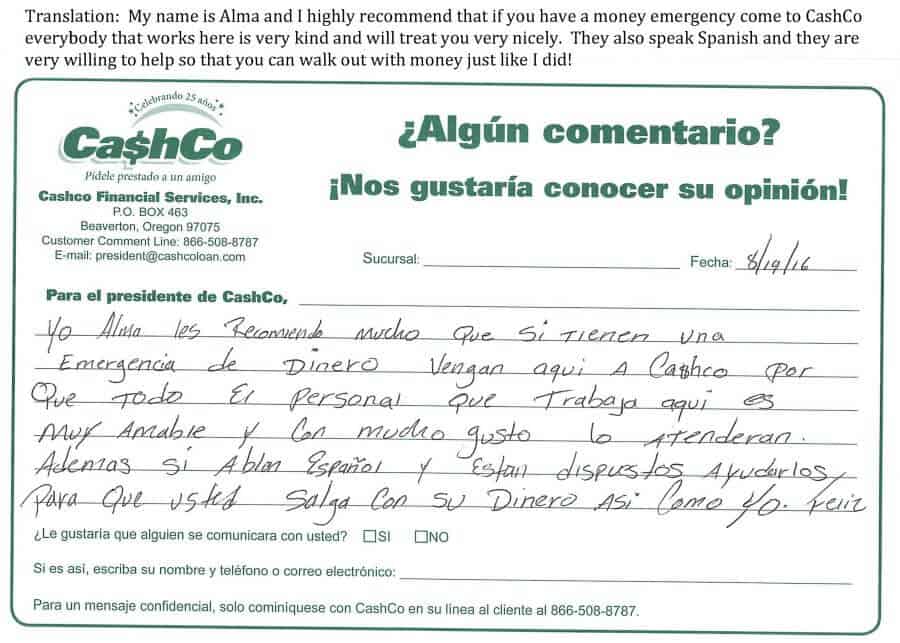 Translation: My name is Alma and I highly recommend that if you have a money emergency come to CashCo
everybody that works here is very kind and will treat you very nicely. They also speak Spanish and they are
very willing to help so that you can walk out with money just like I did!
Celebrando 25 años
Ca$hCo
Pídele prestado a un amigo
Cashco Financial Services, Inc.
P.O. BOX 463
Beaverton, Oregon 97075
Customer Comment Line: 866-508-8787
E-mail: president@cashcoloan.com
¿Algún comentario?
¡Nos gustaría conocer su opinión!
Sucursal: Fecha: 8/19/16
Para el presidente de CashCo,
Yo Alma les Recomiendo mucho Que Si Tienen una
Emergencia de Dinero Vengan aqui A Ca$hco Por
Que Todo El Personal Que Trabaja aqui es
Muy Amable y Con mucho gusto lo Atenderan.
Ademas Si Ablan Español y Estan dispustos Ayudarlos
Para Que usted Salga Con su Dinero Asi Como Yo. Feliz
¿Le gustaría que alguien se comunicara con usted? SI NO
Si es así, escriba su nombre y teléfono o correo electrónico:
Para un mensaje confidencial, solo cominiquese con CashCo en su línea al cliente al 866-508-8787.